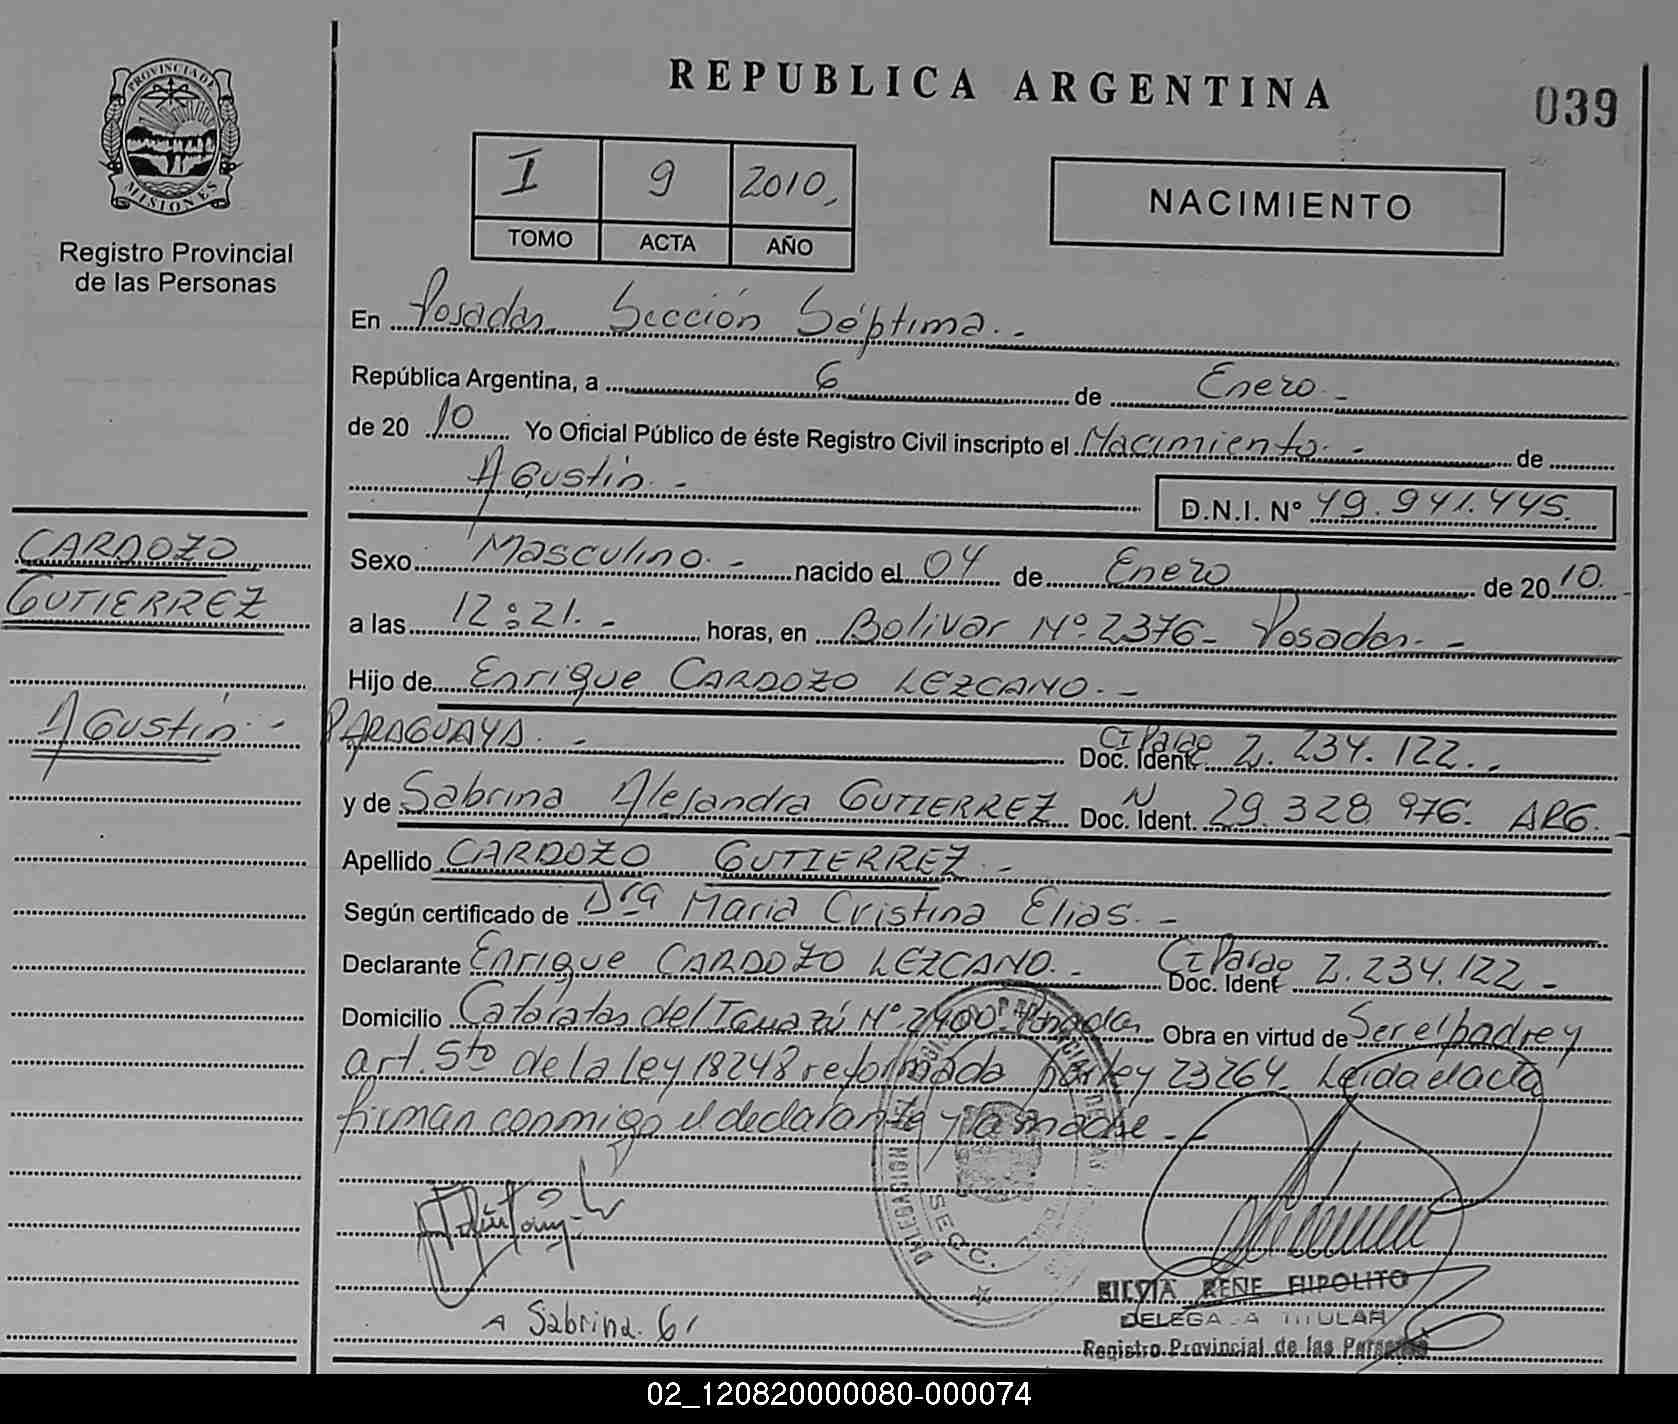 REPUBLICA ARGENTINA
039
PROVINCIA DE
MISIONES
Registro Provincial
de las Personas
I 9 2010.
TOMO ACTA AÑO
NACIMIENTO
En Posadas Sección Séptima.-
República Argentina, a 6 de Enero.-
de 20 10 Yo Oficial Público de éste Registro Civil inscripto el Nacimiento.- de
Agustín.-
D.N.I. Nº 49.941.445.
CARDOZO
GUTIERREZ
Agustín.-
Sexo Masculino.- nacido el 04 de Enero de 20 10.-
a las 12:21.- horas, en Bolivar Nº 2376- Posadas.-
Hijo de Enrique CARDOZO LEZCANO.-
PARAGUAYA.- Doc. Ident. 2.234.122.-
y de Sabrina Alejandra GUTIERREZ Doc. Ident. 29.328.976. ARG.-
Apellido CARDOZO GUTIERREZ.-
Según certificado de Drª Maria Cristina Elias.-
Declarante Enrique CARDOZO LEZCANO.- Doc. Ident 2.234.122-
Domicilio Cataratas del Iguazú Nº 2400- Posadas Obra en virtud de Ser el padre y
art. 5to de la ley 18248 reformada por ley 23264- Leida el acta
firman conmigo el declarante y la madre.-
DELEGACION
SECC.
A Sabrina. G
SILVIA RENE HIPOLITO
DELEGADA TITULAR
Registro Provincial de las Personas
02_120820000080-000074